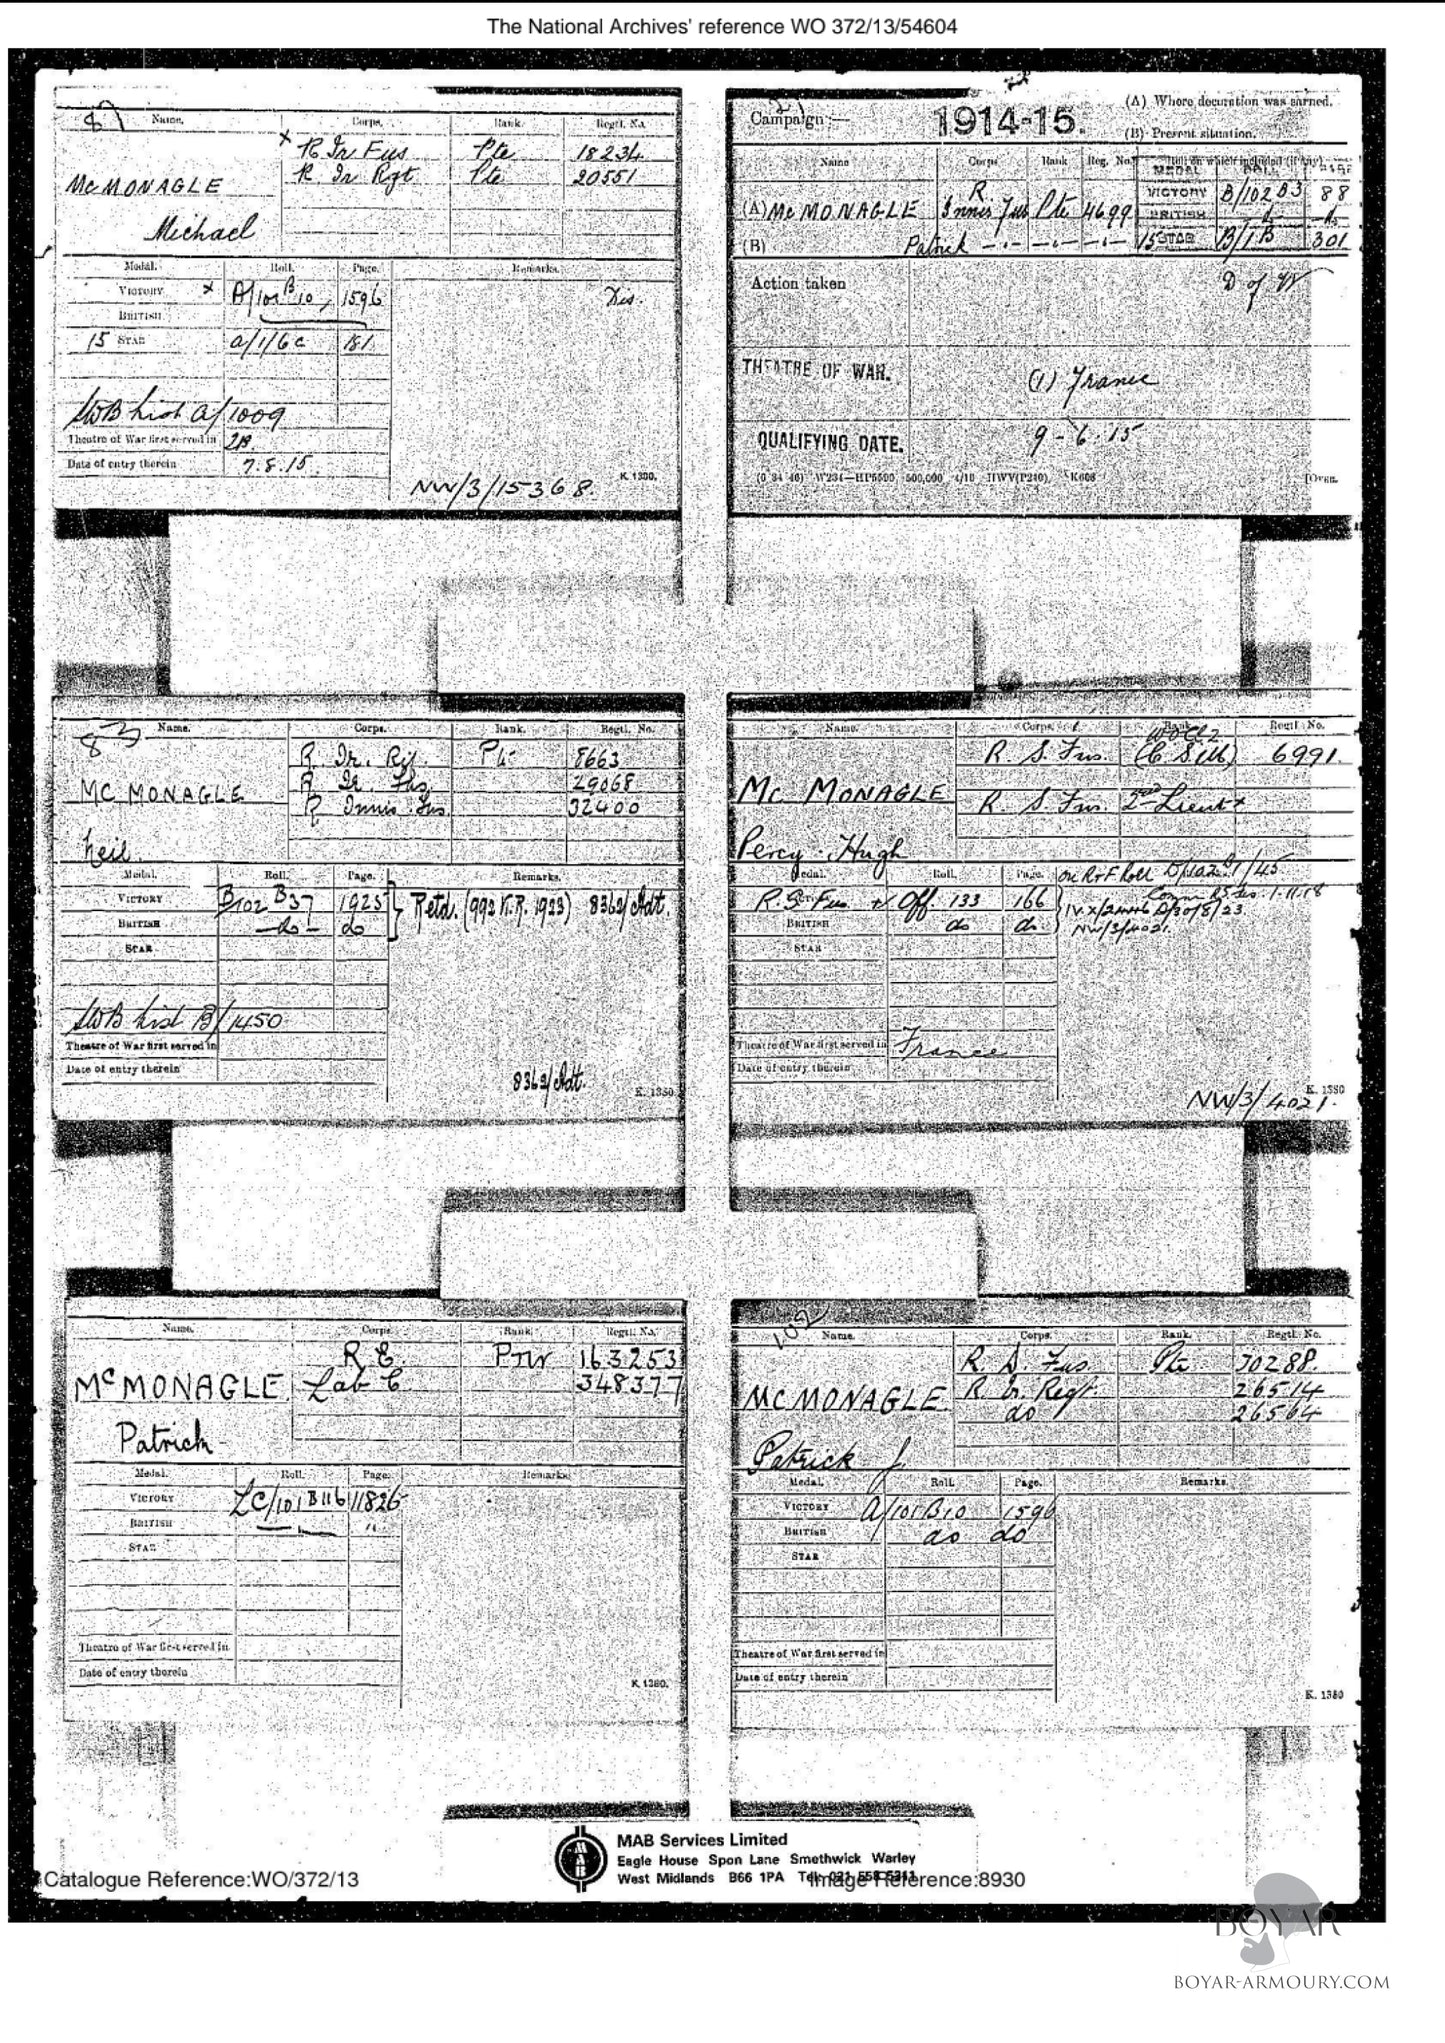 The National Archives' reference WO 372/13/54604
Name. Corps. Rank. Regtl. No.
x R Ir Fus Pte 18234
R. Ir Rgt Pte 20551
McMONAGLE
Michael
Medal. Roll. Page. Remarks.
VICTORY x A/101 B10, 1596
BRITISH
15 STAR a/1/6c 181
SWB List A/1009
Theatre of War first served in 2B.
Date of entry therein 7.8.15.
K. 1380.
NW/3/15368.
Campaign:— 1914-15.
(A) Where decoration was earned.
(B) Present situation.
Name Corps Rank Reg. No. Roll on which included (if any)
MEDAL ROLL PAGE
VICTORY B/102 B3 88
(A) McMONAGLE R Innis Fus Pte 4699
BRITISH
(B) Patrick
15 STAR B/1 B 301
Action taken D of W
THEATRE OF WAR. (1) France
QUALIFYING DATE. 9-6-15
K608 [OVER.
83 Name. Corps. Rank. Regtl. No.
R. Ir. Rif. Pte 8663
R Ir. Fus. 29068
R Innis Fus. 32400
MCMONAGLE
Neil
Medal. Roll. Page. Remarks.
VICTORY B/102 B37 1925 Retd. (992 K.R. 1923) 8362/Adt.
BRITISH -do- do
STAR
SWB List B/1450
Theatre of War first served in
Date of entry therein
8362/Adt.
K. 1380
Name. Corps. Rank. Regtl. No.
WOCl2
R. S. Fus. (C.S.M) 6991.
R. S. Fus. 2nd Lieut x
Mc MONAGLE
Percy Hugh
Medal. Roll. Page. on R & F Roll D/102 B1/45
R. S. Fus Off. 133 166
BRITISH do do
NW/3/4021.
STAR
Theatre of War first served in France
Date of entry therein
K. 1380
NW/3/4021.
Name. Corps. Rank. Regtl. No.
R E. Pnr 163253
Lab C. 348377
McMONAGLE
Patrick
Medal. Roll. Page. Remarks.
VICTORY LC/101 B116 11826
BRITISH
STAR
Theatre of War first served in
Date of entry therein
K. 1380.
102
Name. Corps. Rank. Regtl. No.
R. D. Fus. Pte 30288.
R Ir. Regt. 26514
do 26564
MCMONAGLE
Patrick J
Medal. Roll. Page. Remarks.
VICTORY A/101 B10 1596
BRITISH do do
STAR
Theatre of War first served in
Date of entry therein
K. 1380
MAB
MAB Services Limited
Eagle House Spon Lane Smethwick Warley
West Midlands B66 1PA Tel: 021 558 5311
Catalogue Reference:WO/372/13
Image Reference:8930
BOYAR
BOYAR-ARMOURY.COM